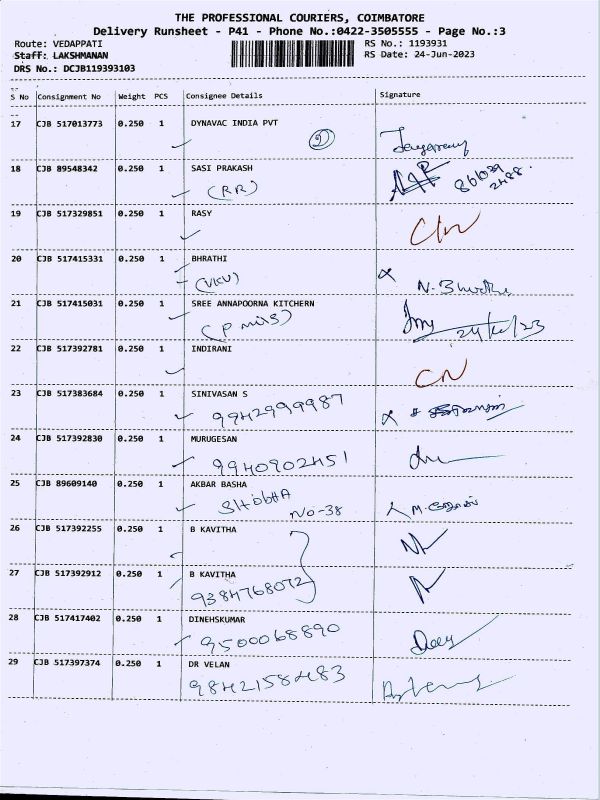 THE PROFESSIONAL COURIERS, COIMBATORE
Delivery Runsheet - P41 - Phone No.:0422-3505555 - Page No.:3
Route: VEDAPPATI RS No.: 1193931
Staff: LAKSHMANAN RS Date: 24-Jun-2023
DRS No.: DCJB119393103
S No Consignment No Weight PCS Consignee Details Signature
17 CJB 517013773 0.250 1 DYNAVAC INDIA PVT
2
18 CJB 89548342 0.250 1 SASI PRAKASH
(RR)
19 CJB 517329851 0.250 1 RASY
20 CJB 517415331 0.250 1 BHRATHI
(VKV)
21 CJB 517415031 0.250 1 SREE ANNAPOORNA KITCHERN
(P mills) 24/6/23
22 CJB 517392781 0.250 1 INDIRANI
23 CJB 517383684 0.250 1 SINIVASAN S
9942999987
24 CJB 517392830 0.250 1 MURUGESAN
9940902451
25 CJB 89609140 0.250 1 AKBAR BASHA
SHObHA
No-38
26 CJB 517392255 0.250 1 B KAVITHA
27 CJB 517392912 0.250 1 B KAVITHA
9384768072
28 CJB 517417402 0.250 1 DINEHSKUMAR
9500068890
29 CJB 517397374 0.250 1 DR VELAN
9842158483